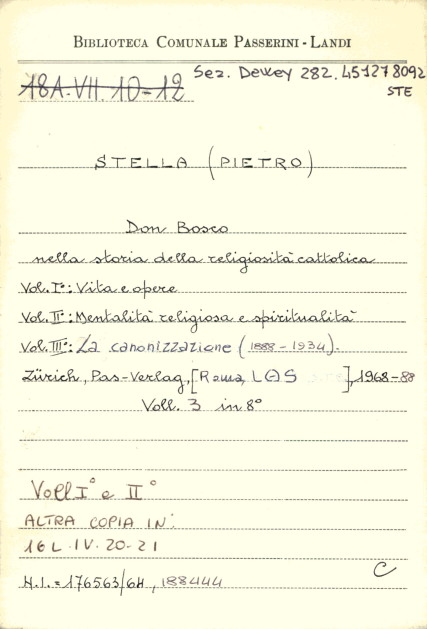 BIBLIOTECA COMUNALE PASSERINI - LANDI
Sez. Dewey 282.451278092
18A.VII.10-12
STE
STELLA (PIETRO)
Don Bosco
nella storia della religiosità cattolica
Vol. I°: Vita e opere
Vol. II°: Mentalità religiosa e spiritualità
Vol. III°: La canonizzazione (1888-1934).
Zürich, Pas-Verlag, [Roma, LAS ], 1968-88
Voll. 3 in 8°
Voll I° e II°
ALTRA COPIA IN:
16 L.IV.20-21
C
N.I.=176563/64, 188444